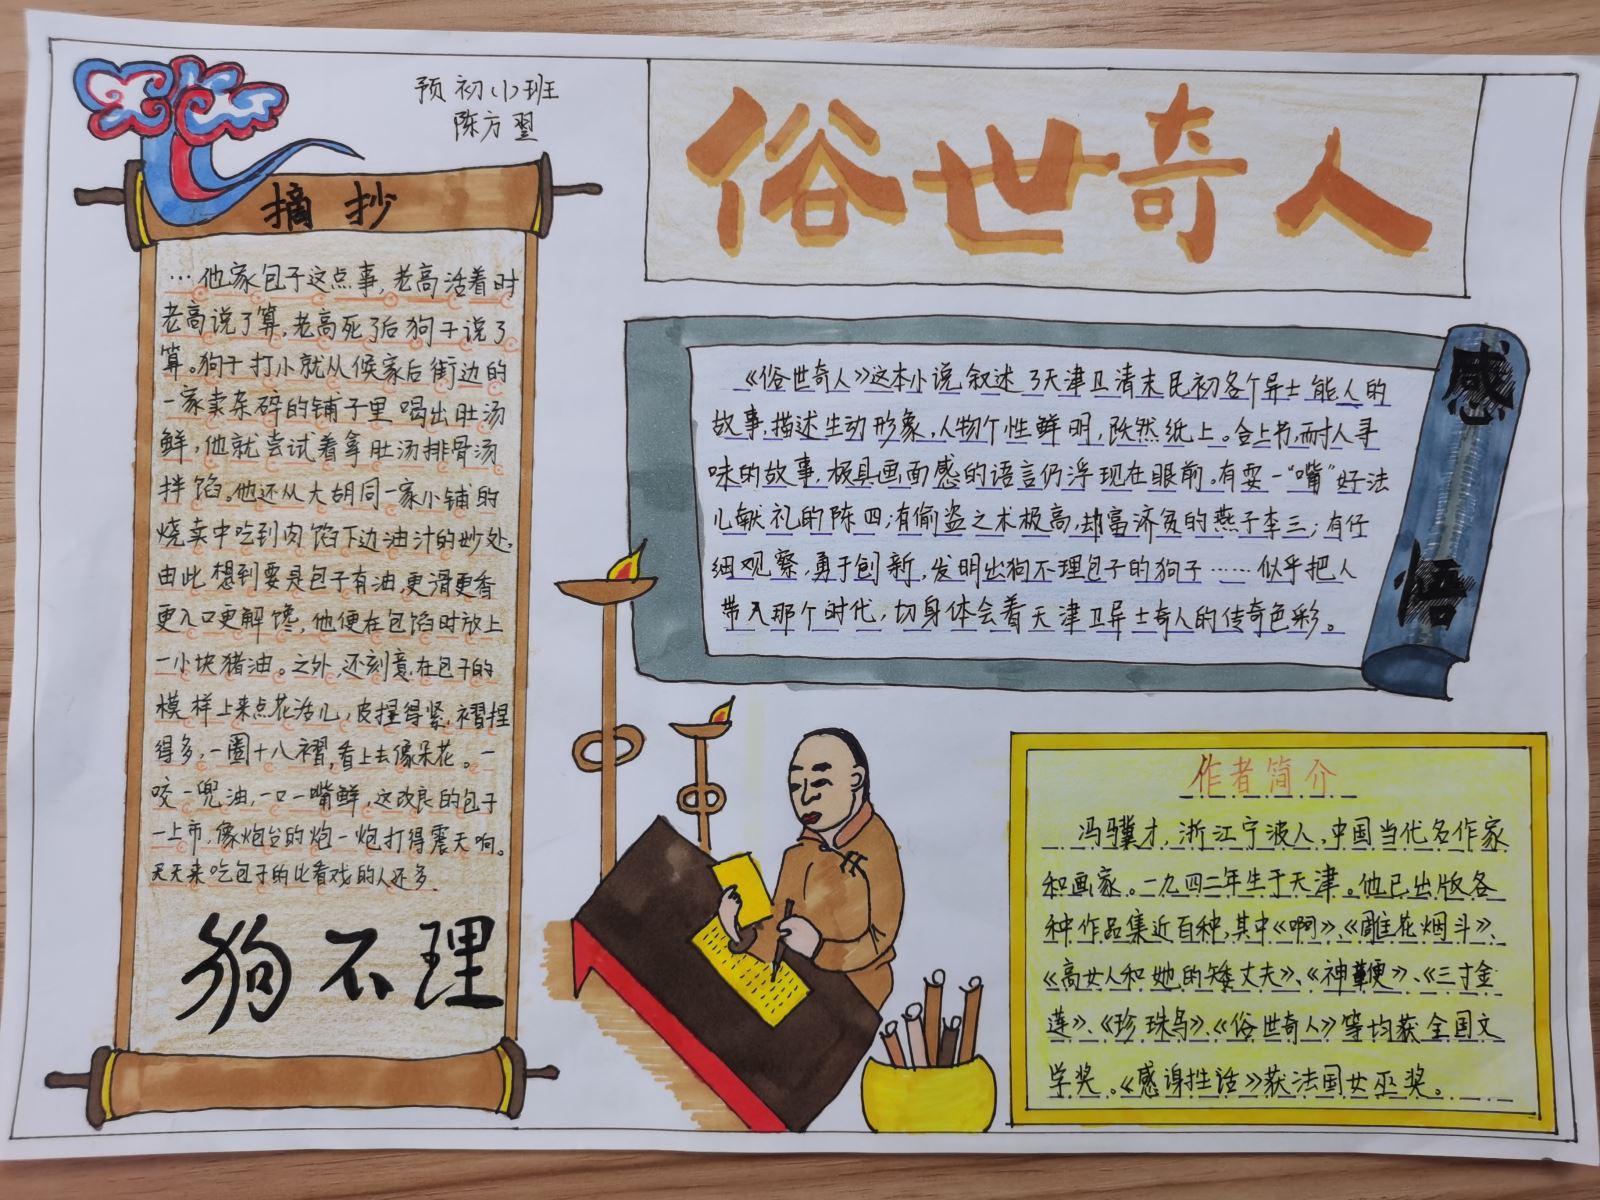 预初(1)班
陈方翌
俗世奇人
摘抄
…他家包子这点事,老高活着时
老高说了算,老高死了后狗子说了
算。狗子打小就从候家后街边的
一家卖杂碎的铺子里喝出肚汤
鲜,他就尝试着拿肚汤排骨汤
拌馅。他还从大胡同一家小铺的
烧卖中吃到肉馅下边油汁的妙处.
由此想到要是包子有油,更滑更香
更入口更解馋,他便在包馅时放上
一小块猪油。之外,还刻意在包子的
模样上来点花活儿,皮捏得紧,褶捏
得多,一圈十八褶,看上去像朵花。一
咬一兜油,一口一嘴鲜,这改良的包子
一上市,像炮台的炮一炮打得震天响。
天天来吃包子的比看戏的人还多.
狗不理
感悟
《俗世奇人》这本小说叙述了天津卫清末民初各个异士能人的
故事,描述生动形象,人物个性鲜明,跃然纸上。合上书,而耐人寻
味的故事,极具画面感的语言仍浮现在眼前。有耍一“嘴”好法
儿献礼的陈四;有偷盗之术极高,劫富济贫的燕子李三;有仔
细观察,勇于创新,发明出狗不理包子的狗子……似乎把人
带入那个时代,切身体会着天津卫异士奇人的传奇色彩。
作者简介
冯骥才,浙江宁波人,中国当代名作家
和画家。一九四二年生于天津。他已出版各
种作品集近百种,其中《啊》、《雕花烟斗》、
《高女人和她的矮丈夫》、《神鞭》、《三寸金
莲》、《珍珠鸟》、《俗世奇人》等均获全国文
学奖。《感谢生活》获法国女巫奖。